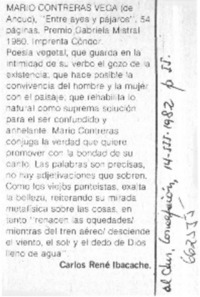 MARIO CONTRERAS VEGA (de
Ancud), "Entre ayes y pájaros", 54
páginas. Premio Gabriela Mistral
1980. Imprenta Cóndor.
Poesía vegetal, que guarda en la
intimidad de su verbo el gozo de la
existencia, que hace posible la
convivencia del hombre y la mujer
con el paisaje; que rehabilita lo
natural como suprema solución
para el ser confundido y
anhelante. Mario Contreras
conjuga la verdad que quiere
promover con la bondad de su
canto. Las palabras son precisas,
no hay adjetivaciones que sobren.
Como los viejos punteístas, exalta
la belleza, reiterando su mirada
metafísica sobre las cosas, en
tanto "renacen las oquedades/
mientras del tren aéreo/ desciende
el viento, el sol y el dedo de Dios
lleno de agua".
Carlos René Ibacache.
Concepción, 14-III-1982 p. II.